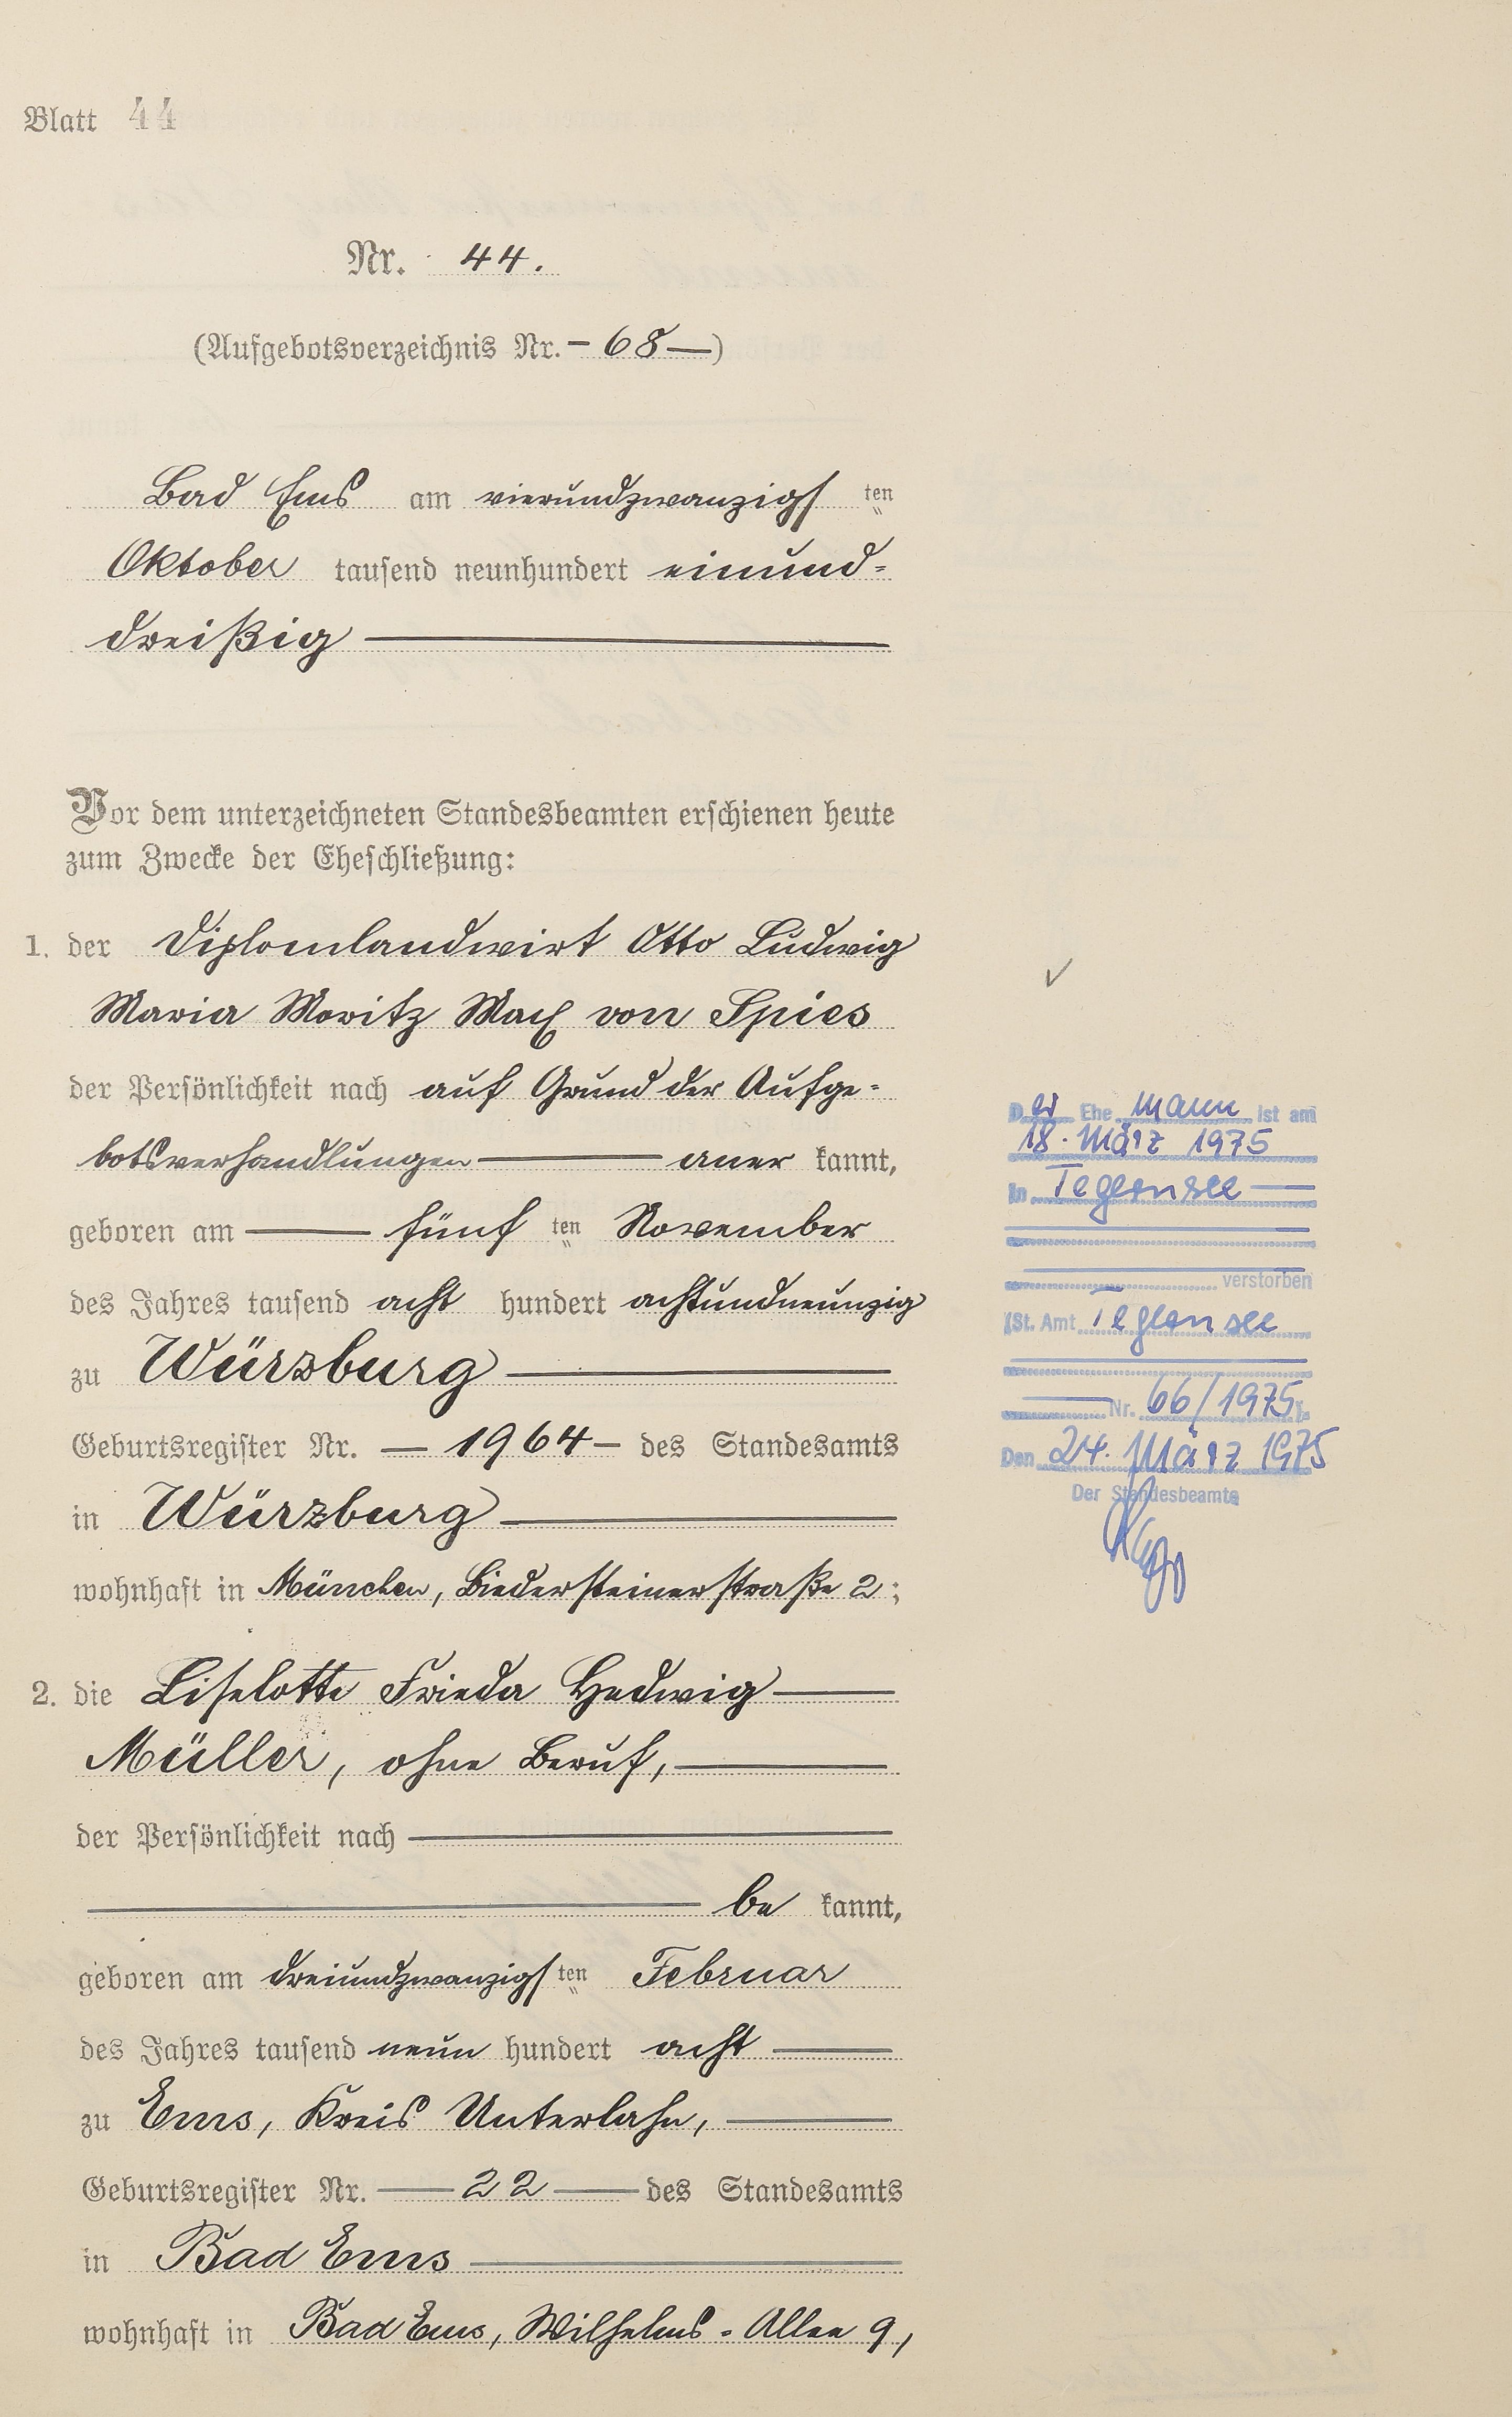 Blatt 44
Nr. 44.
(Aufgebotsverzeichnis Nr. – 68 —)
Bad Ems am vierundzwanzigs ten
Oktober tausend neunhundert einund=
dreißig
Vor dem unterzeichneten Standesbeamten erschienen heute
zum Zwecke der Eheschließung:
1. der Diplomlandwirt Otto Ludwig
Maria Moritz Max von Spies
der Persönlichkeit nach auf Grund der Aufge=
botsverhandlungen — aner kannt,
geboren am — fünf ten November
des Jahres tausend acht hundert achtundneunzig
zu Würzburg —
Geburtsregister Nr. — 1964 — des Standesamts
in Würzburg —
wohnhaft in München, Biedersteinerstraße 2;
2. die Liselotte Frieda Hedwig —
Müller, ohne Beruf, —
der Persönlichkeit nach —
— be kannt,
geboren am dreiundzwanzigs ten Februar
des Jahres tausend neun hundert acht —
zu Ems, Kreis Unterlahn, —
Geburtsregister Nr. — 22 — des Standesamts
in Bad Ems —
wohnhaft in Bad Ems, Wilhelms-Allee 9,
Der Ehe mann ist am
18. März 1975
in Tegernsee —
verstorben
(St. Amt Tegernsee
Nr. 66/1975).
Den 24. März 1975
Der Standesbeamte